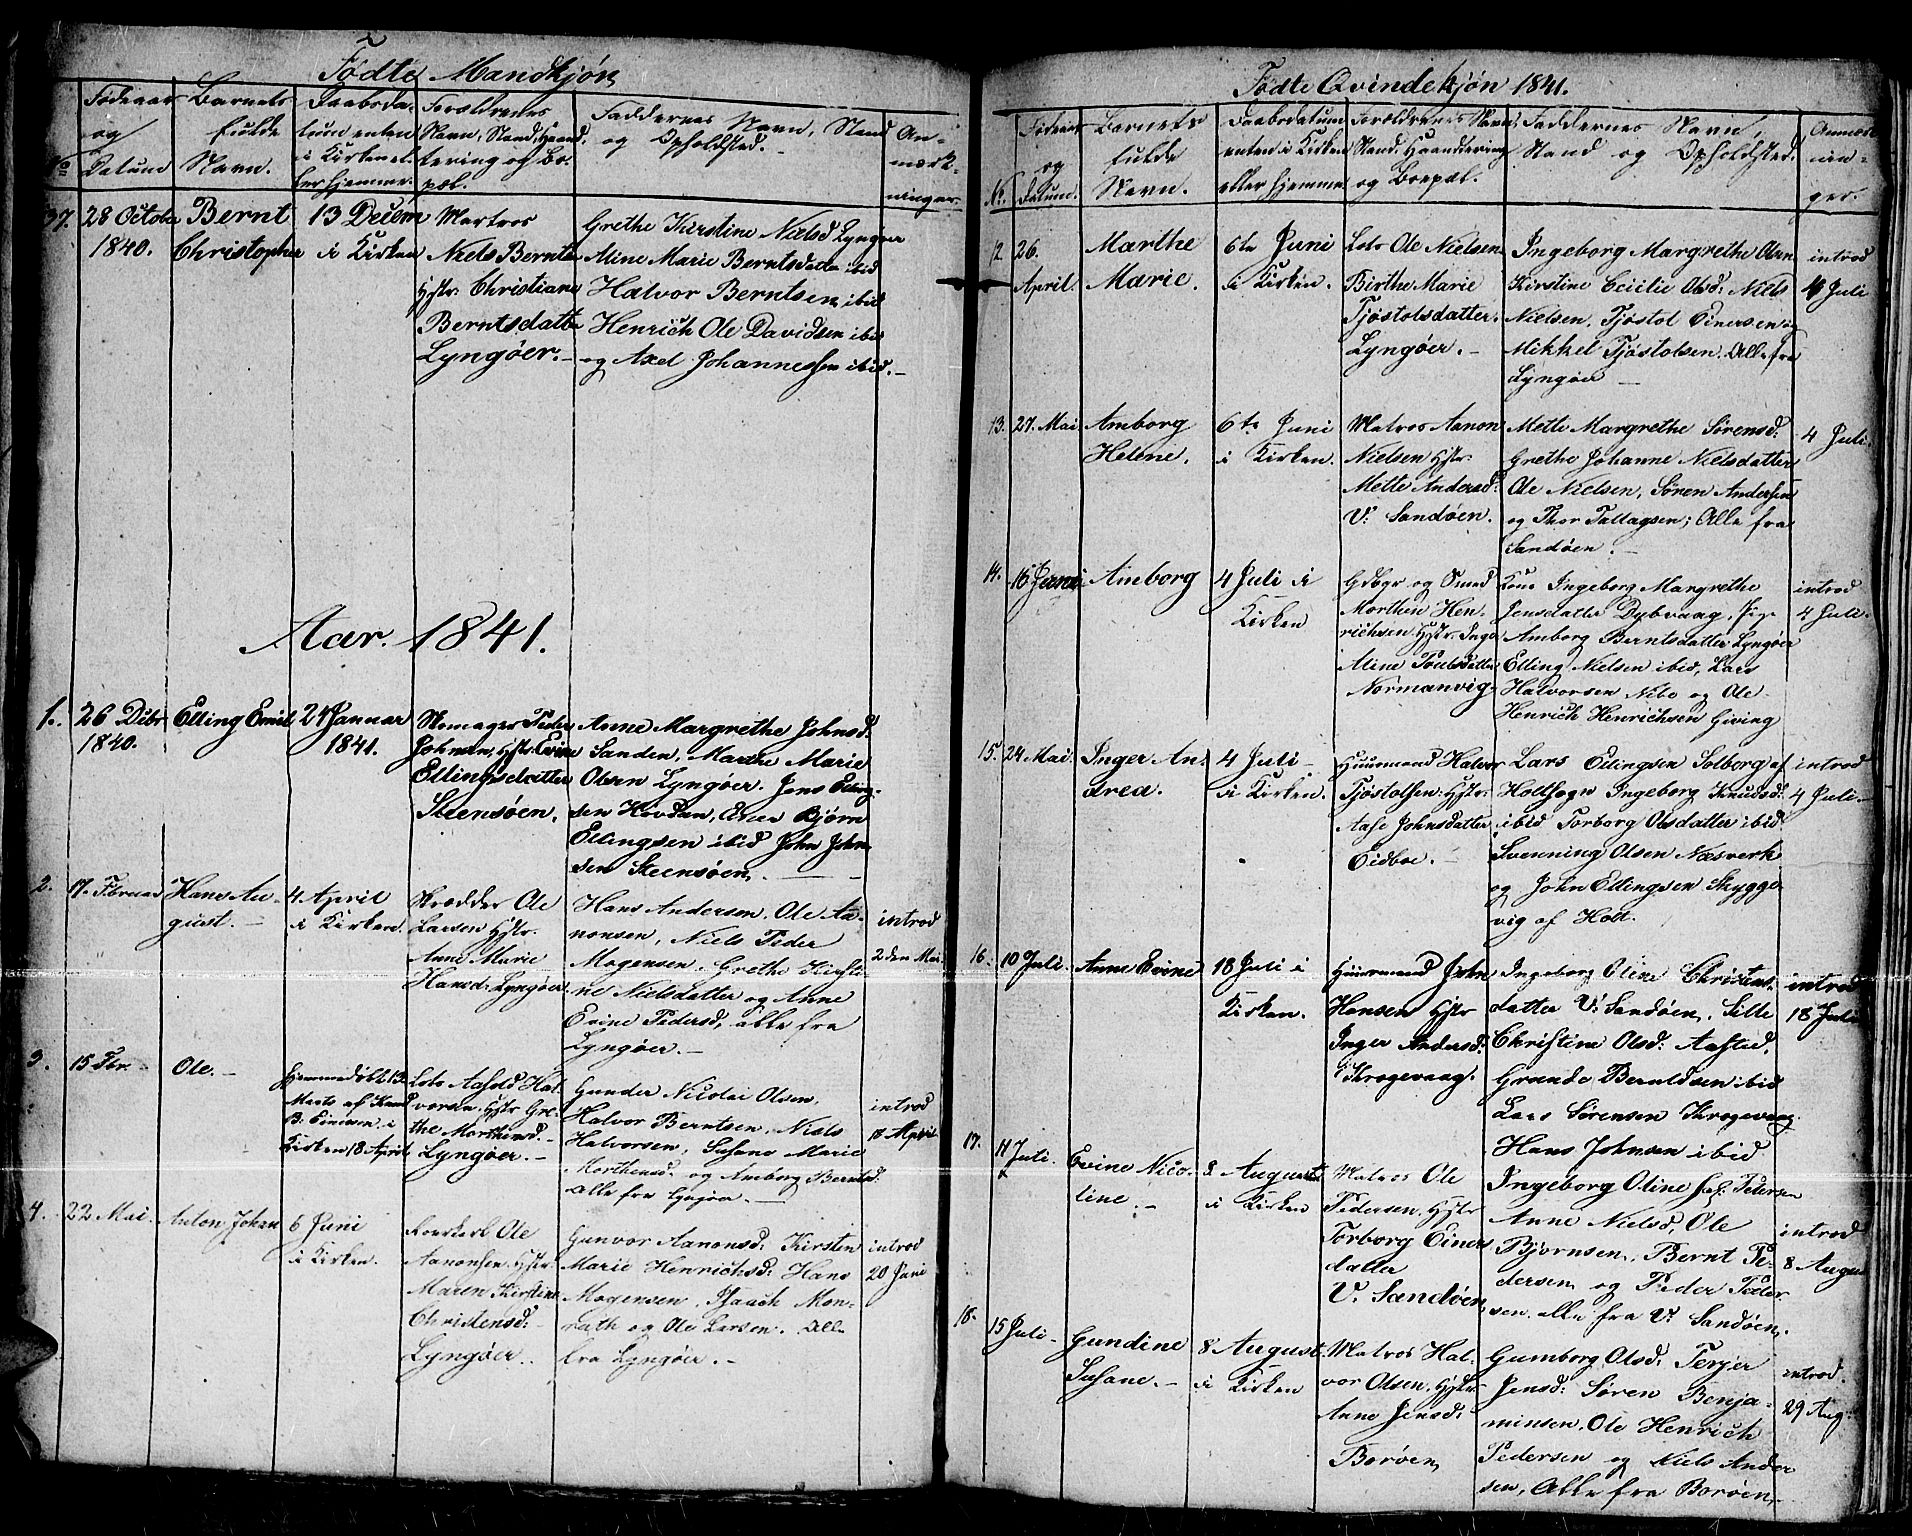 Fødte Mandkjøn
No
Fødeaar
og
Datum
Barnets
fulde
Navn.
Daabsda-
tum enten
i Kirken el-
ler hjemme.
Forældrenes
Navn, Stand, Haand-
tering og Bo-
pæl.
Faddernes Navn, Stand
og Opholdsted.
An-
mærk-
ninger.
37.
28 Octobr
1840.
Bernt
Christopher
13 Decem
i Kirken
Matros
Niels Bernts
Hstr. Christiane
Berntsdatter
Lyngøer.
Grethe Kirstine Nielsd Lyngøer
Aline Marie Berntsdatter ibid
Halvor Berntsen ibid
Henrich Ole Davidsen ibid
og Axel Johannessen ibid.
Aar. 1841.
1.
26 Dcbr
1840.
Elling Emil
24 Januar
1841.
Skomager Peder
Johnsen, Hstr Evine
Ellingsdatter
Steensøen.
Anne Margrethe Johnsd:
Sanden, Marthe Marie
Olsen Lyngøer. Jens Elling-
sen Hovdan, Bjørn
Ellingsen ibid John John-
sen Steensøen.
2.
17. Februar
Hans Au-
gust.
4 April
i Kirken.
Skrædder Ole
Larsen Hstr.
Anne Marie
Hansd: Lyngøer
Hans Andersen. Ole Aa-
nonsen, Niels Peder
Mogensen. Grethe Kirsti-
ne Nielsdatter og Anne
Evine Pedersd, alle fra
Lyngøer.
introd
2 den Mai.
3.
15 Fbr.
Ole.
Hjemmedøbt 13
Marts af Knud
B. Einersen, i
Kirken 18 April
Lods Aasold Hal-
vorsen, Hstr Gre-
the Morthensd.
Lyngøer.
Gunder Nicolai Olsen,
Halvor Berntsen, Niels
Halvorsen, Susane Marie
Morthensd. og Amborg Berntsd.
Alle fra Lyngøer.
introd
18 April
4.
22 Mai.
Anton Johan
6 Juni
i Kirken.
Ole
Aanonsen, Hstr
Maren Kirstine
Christensd:
Lyngøer.
Gunvor Aanonsd: Kirsten
Marie Henrichsd: Hans
Mogensen, Isaach Mon-
rath og Ole Larsen. Alle
fra Lyngøer.
introd
20 Juni
Fødte Qvindekjøn 1841.
No.
Fødeaar
og
Datum.
Barnets
fulde
Navn.
Daabsdatum
enten i Kirken
eller hjemme
Forældrenes Navn
Stand, Haandtering
og Boepæl.
Faddernes Navn,
Stand og Opholdsted.
Anmærk
nin-
ger.
12.
26.
April.
Marthe
Marie.
6te Juni
i Kirken.
Lods Ole Nielsen
Birthe Marie
Tjøstolsdatter.
Lyngøer.
Ingeborg Margrethe Olsen
Kirstine Cecilie Olsd: Niels
Nielsen, Tjøstol Einersen og
Mikkel Tjøstolsen. Alle fra
Lyngøer
introd
4 Juli
13.
27. Mai
Amborg
Helene.
6te Juni
i Kirken.
Matros Aanon
Nielsen Hstr.
Mette Andersd:
V: Sandøen.
Mette Margrethe Sørensd:
Grethe Johanne Nielsdatter
Ole Nielsen, Søren Andersen
og Thor Tallagsen; Alle fra
Sandøen.
4 Juli
14.
16 Juni
Amborg
4 Juli i
Kirken
Gdbgr og Smed
Morthen Hen-
richsen Hstr. Inge
Aline Poulsdatter
Normanvig
Kone Ingeborg Margrethe
Jensdatter Dybvaag, Pige
Amborg Berntsdatter Lyngøer
Elling Nielsen ibid, Lars
Halvorsen Nile og Ole
Henrich Henrichsen Giving
introd
4 Juli.
15.
24 Mai.
Inger An-
drea.
4 Juli
i Kirken.
Huusmand Halvor
Tjøstolsen. Hstr:
Aase Johnsdatter
Eidboe.
Lars Ellingsen Solborg af
Holtsogn Ingeborg Knudsd:
ibid Torborg Olsdatter ibid
Svenning Olsen Næsverk
og John Ellingsen Skygge-
vig af Holt.
introd
4 Juli.
16.
10 Juli.
Anne Evine
18 Juli i
Kirken.
Huusmand John
Hansen Hstr
Inger Andersd:
i Krogevaag.
Ingeborg Oline Christens-
datter V: Sandøen, Sille
Christine Olsd: Aasted.
Grande Berntdsen ibid
Lars Sørensen Krogevaag.
Hans Johnsen ibid
introd
18 Juli
17.
11 Juli.
Evine Nico-
line.
8 August
i Kirken
Matros Ole
Pedersen. Hstr
Torborg Einers
datter
V. Sandøen
Ingeborg Oline Pedersen
Anne Nielsd, Ole
Bjørnsen, Bernt Pe-
dersen og Peder Peder-
sen. alle fra V: Sandøen.
introd
8 August
18.
15 Juli
Gundine
Susane.
8 August
i Kirken
Matros Hal-
vor Olsen. Hstr
Anne Jensd:
Borøen
Gumborg Olsd: Terjer
Jensd: Søren Benja-
minsen. Ole Henrich
Pedersen og Niels Ander
sen, Alle fra Borøen.
introd.
29 Aug: